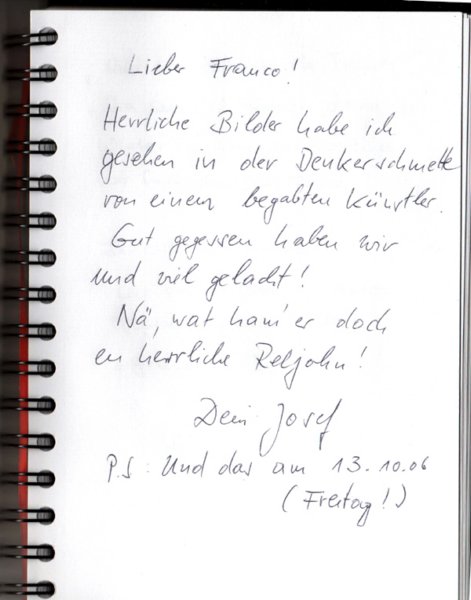 Lieber Franco!
Herrliche Bilder habe ich
gesehen in der Denkerschmette
von einem begabten Künstler.
Gut gegessen haben wir
und viel gelacht!
Nä, wat ham' er doch
en herrliche Relijohn!
Dein Josef
P.S. Und das am 13.10.06
(Freitag!)